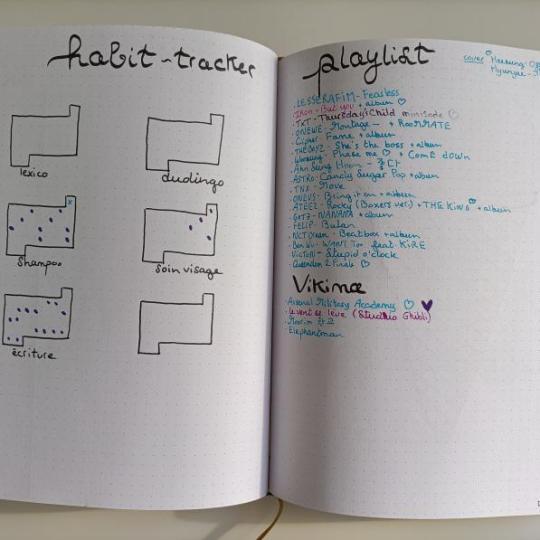 habit-tracker
lexico
duolingo
Shampoo
soin visage
écriture
playlist
cover
.LESSERAFIM - Fearless
But you + album ♡
.TXT - Thursday's Child minisode ♡
.ONEWE - Montage + RooMMATE
.Ciipher Fame + album
.THEBOYZ - She's the boss + album
Phase me ♡ + Come down
.ASTRO - Candy Sugar Pop + album
.TNX - Move
.ONEUS - Bring it on + album
.ATEEZ - Rocky (Boxers ver.) + THE KING + album
.GOT7 - NANANA + album
.FELIP - Bulan
.NCT Dream - Beatbox + album
feat KiRE
.VICTON - Stupid o'clock
♡
Viki
.Arsenal Military Academy ♡ ♥
.le vent se lève (Studio Ghibli)
.Elephantman